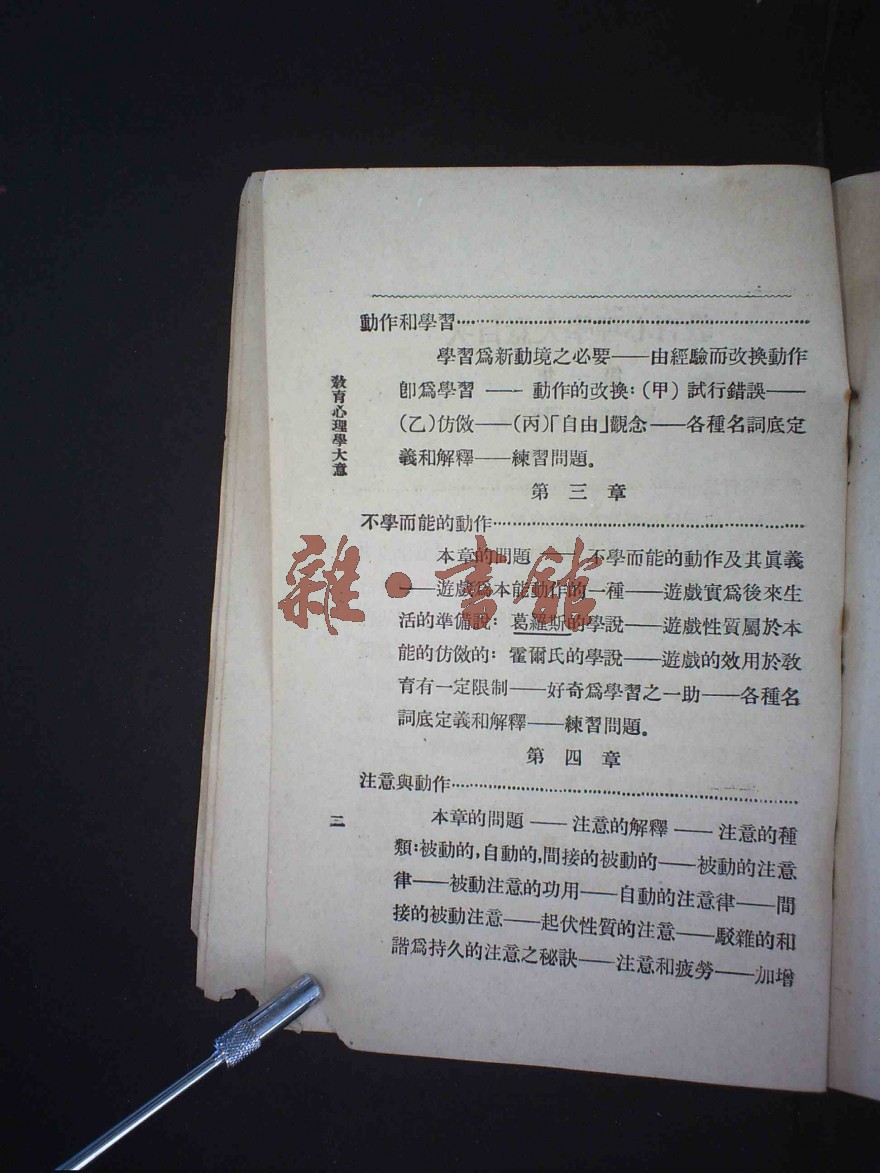 動作和學習
學習爲新動境之必要——由經驗而改換動作
卽爲學習——動作的改換:(甲)試行錯誤——
(乙)仿傚——(丙)「自由」觀念——各種名詞底定
義和解釋——練習問題。
第三章
不學而能的動作
本章的問題——不學而能的動作及其眞義
——遊戲爲本能動作的一種——遊戲實爲後來生
活的準備說:葛羅斯的學說——遊戲性質屬於本
能的仿傚的:霍爾氏的學說——遊戲的效用於敎
育有一定限制——好奇爲學習之一助——各種名
詞底定義和解釋——練習問題。
第四章
注意與動作
本章的問題——注意的解釋——注意的種
類:被動的,自動的,間接的被動的——被動的注意
律——被動注意的功用——自動的注意律——間
接的被動注意——起伏性質的注意——駁雜的和
諧爲持久的注意之秘訣——注意和疲勞——加增
敎育心理學大意
三
雜·書館